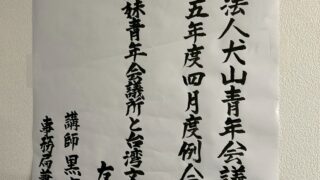 法人犬山青年会議
五年度四月度例会
妹青年会議所と台湾
講師黒
事務局兼